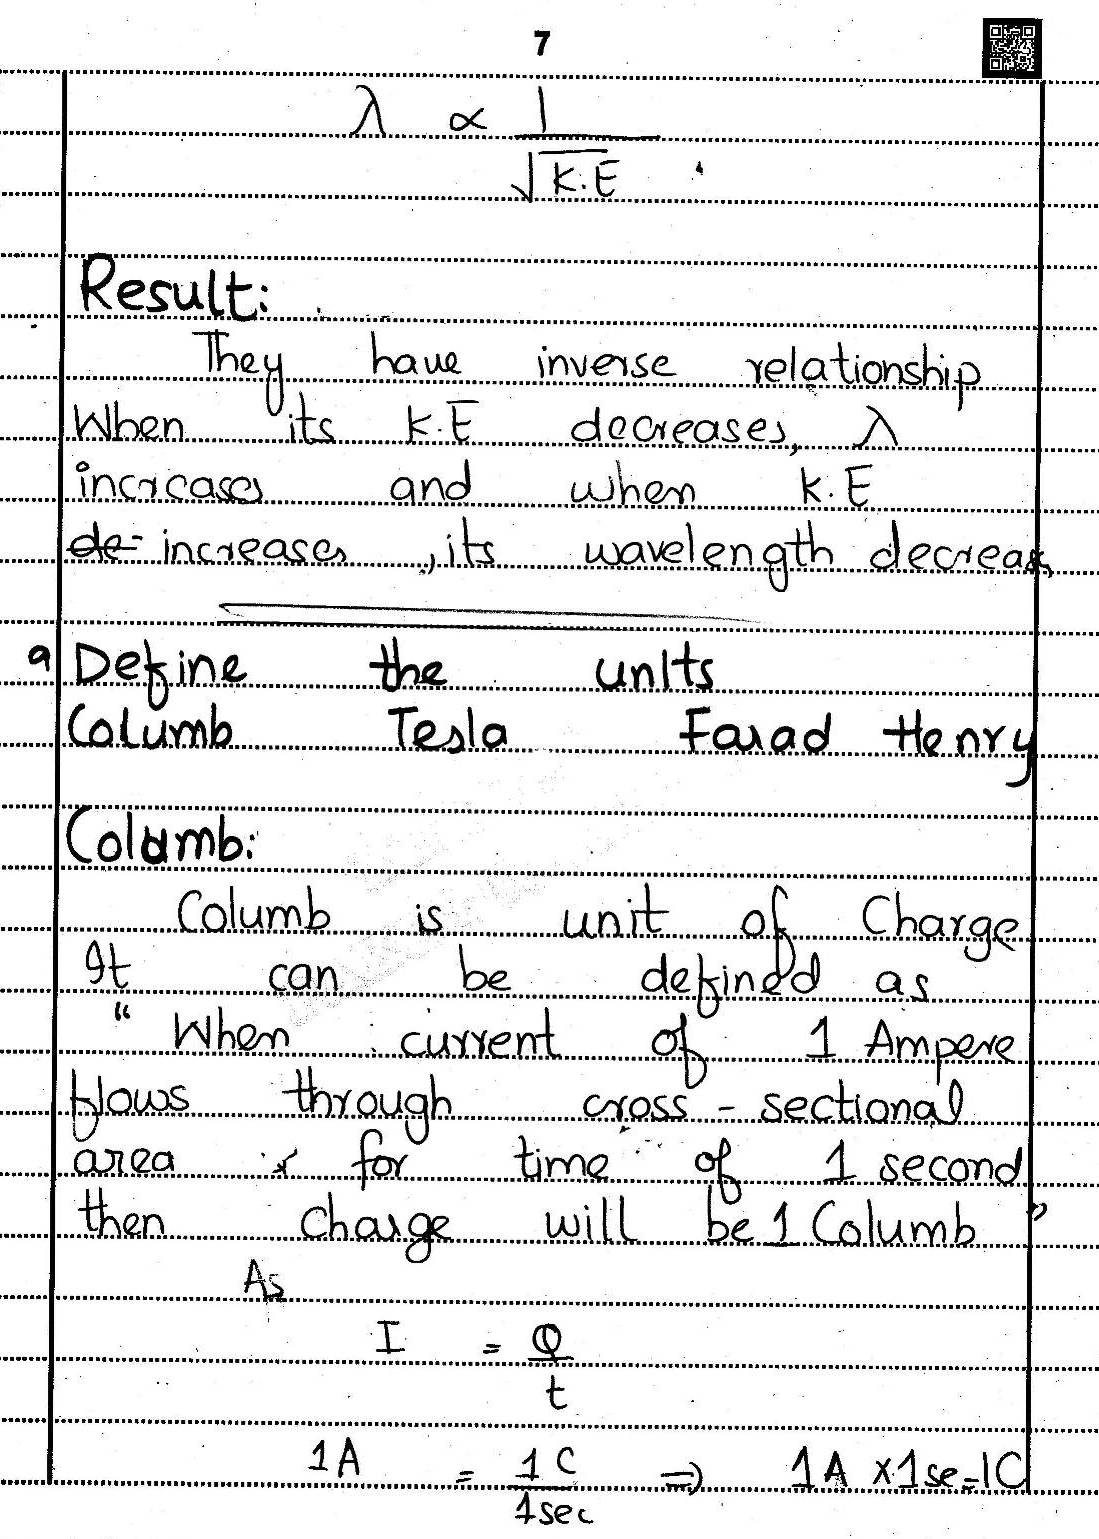 7
λ ∝ 1
√K.E
Result:
They have inverse relationship
When its K.E decreases, λ
increases and when K.E
de- increases, its wavelength decreas
9 Define the units
Columb Tesla Farad Henry
Columb:
Columb is unit of Charge
It can be defined as
“ When current of 1 Ampere
flows through cross - sectional
area for time of 1 second
then charge will be 1 Columb ”
As
I = Q
t
1A = 1C ⇒ 1A x 1se = 1C
1sec